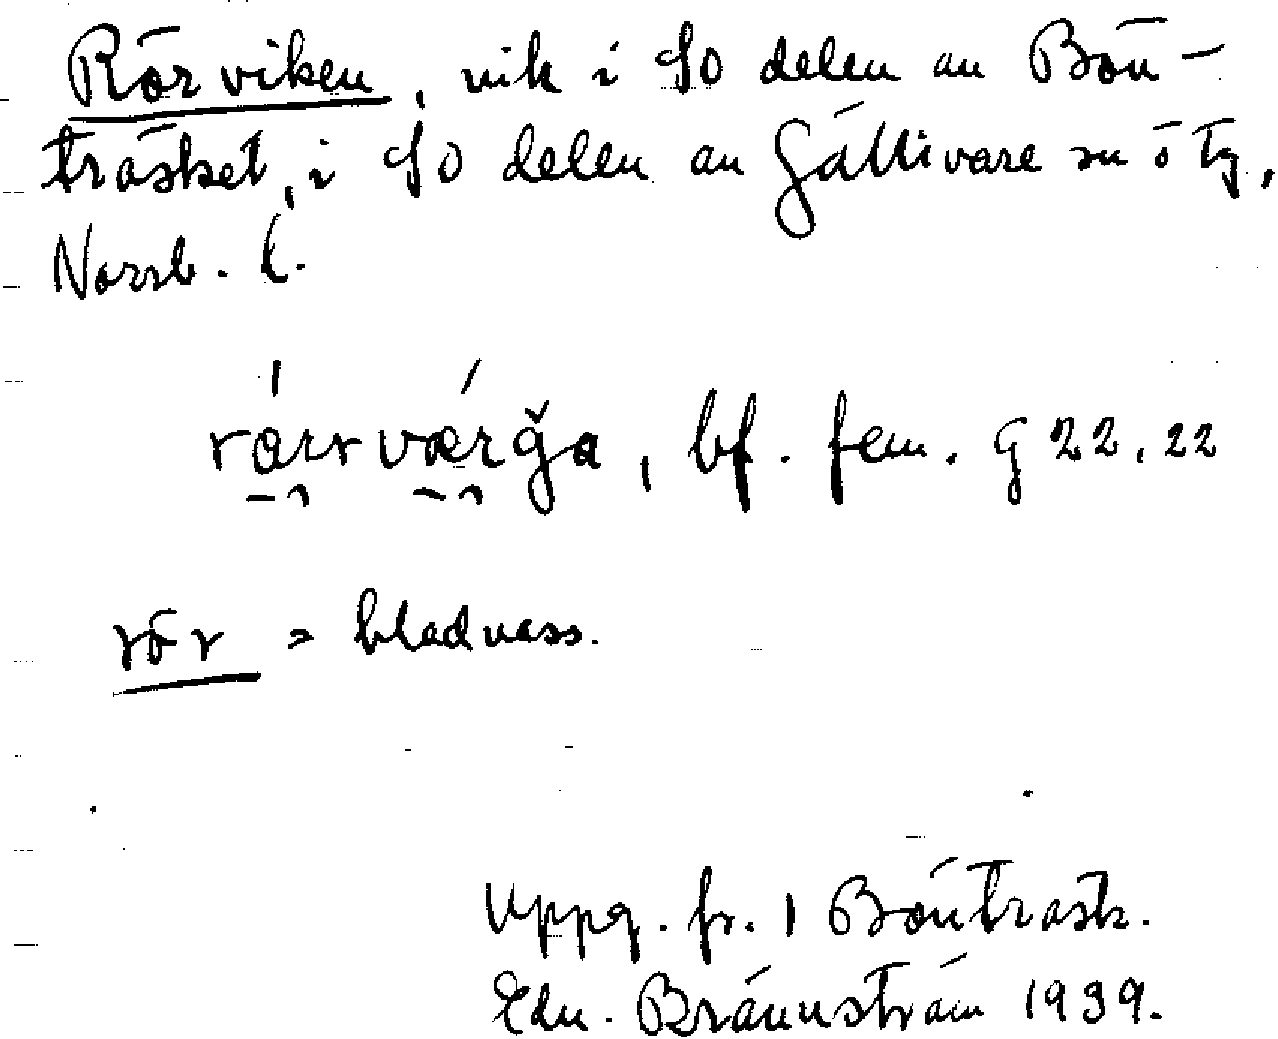 Rörviken, vik i SO delen av Bön-
träsket, i SO delen av Gällivare sn o tg,
Norrb. l.
rörrværğa, bf. fem. g 22, 22
rör = bladvass.
Uppg. fr. 1 Böntrask.
Edv. Brännström 1939.